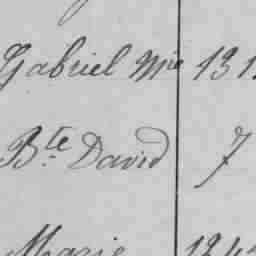 Gabriel Mie 131
Bte David 7
Marie 124